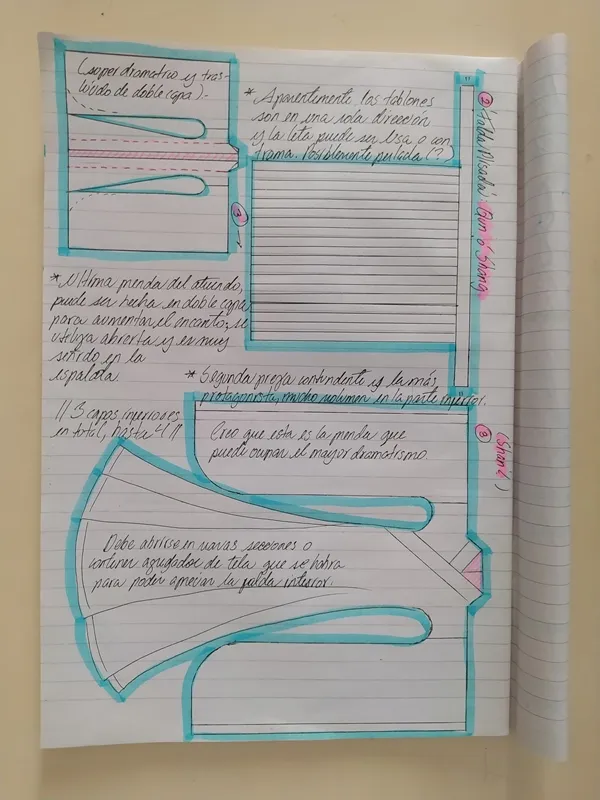 (super dramatico y tras-
lúcido de doble capa).-
* Aparentemente los tablones
son en una sola dirección
y la tela puede ser lisa o con
trama. Posiblemente peltada (?)
② Falda Plisada: Qun ó Shang
③
* Última prenda del atuendo,
puede ser hecha en doble capa
para aumentar el encanto; se
utiliza abierta y es muy
sentido en la
espalda.
* Segunda pieza contundente y la más
protagonista, mucho volumen en la parte inferior.
// 3 capas inferiores
en total, hasta 4 //
Creo que esta es la prenda que
puede ocupar el mayor dramatismo
③
Debe abrirse en varias secciones o
contener agregados de tela que se habra
para poder apreciar la falda interior.